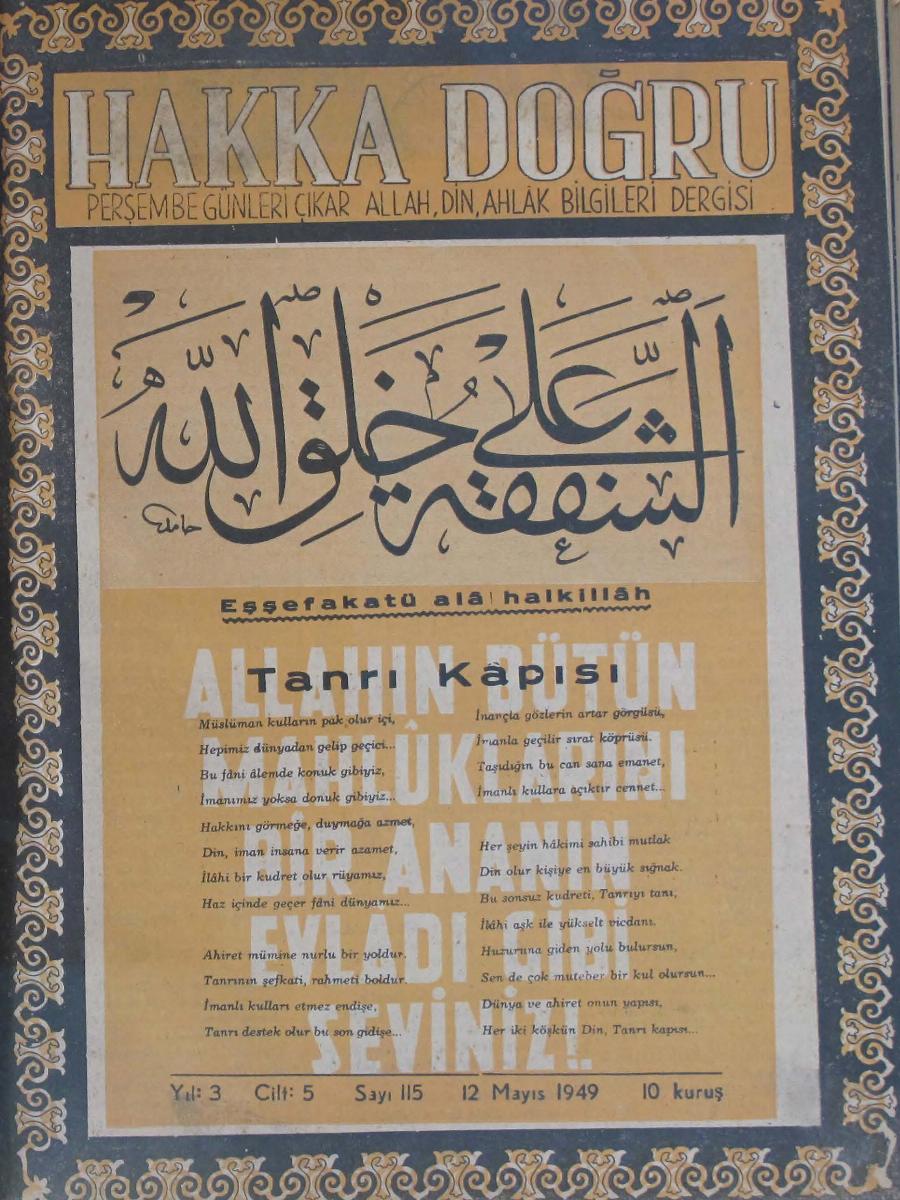 HAKKA DOĞRU
PERŞEMBE GÜNLERİ ÇIKAR ALLAH, DİN, AHLÂK BİLGİLERİ DERGİSİ
الشفقة على خلق الله
حامد
Eşşefakatü alâ halkillâh
ALLAHIN BÜTÜN
MAHLÛKLARINI
BİR ANANIN
EVLÂDI GİBİ
SEVİNİZ!.
Tanrı Kâpısı
Müslüman kulların pak olur içi,
Hepimiz dünyadan gelip geçici...
Bu fâni âlemde konuk gibiyiz,
İmanımız yoksa donuk gibiyiz...
Hakkını görmeğe, duymağa azmet,
Din, iman insana verir azamet,
İlâhi bir kudret olur rüyamız,
Haz içinde geçer fâni dünyamız...
Ahiret mümine nurlu bir yoldur.
Tanrının şefkati, rahmeti boldur.
İmanlı kulları etmez endişe,
Tanrı destek olur bu son gidişe...
İnançla gözlerin artar görgüsü,
İmanla geçilir sırat köprüsü.
Taşıdığın bu can sana emanet,
İmanlı kullara açıktır cennet...
Her şeyin hâkimi sahibi mutlak
Din olur kişiye en büyük sığnak.
Bu sonsuz kudreti, Tanrıyı tanı,
İlâhi aşk ile yükselt vicdanı.
Huzuruna giden yolu bulursun,
Sen de çok muteber bir kul olursun...
Dünya ve ahiret onun yapısı,
Her iki köşkün Din, Tanrı kapısı...
Yıl: 3 Cilt: 5 Sayı 115 12 Mayıs 1949 10 kuruş